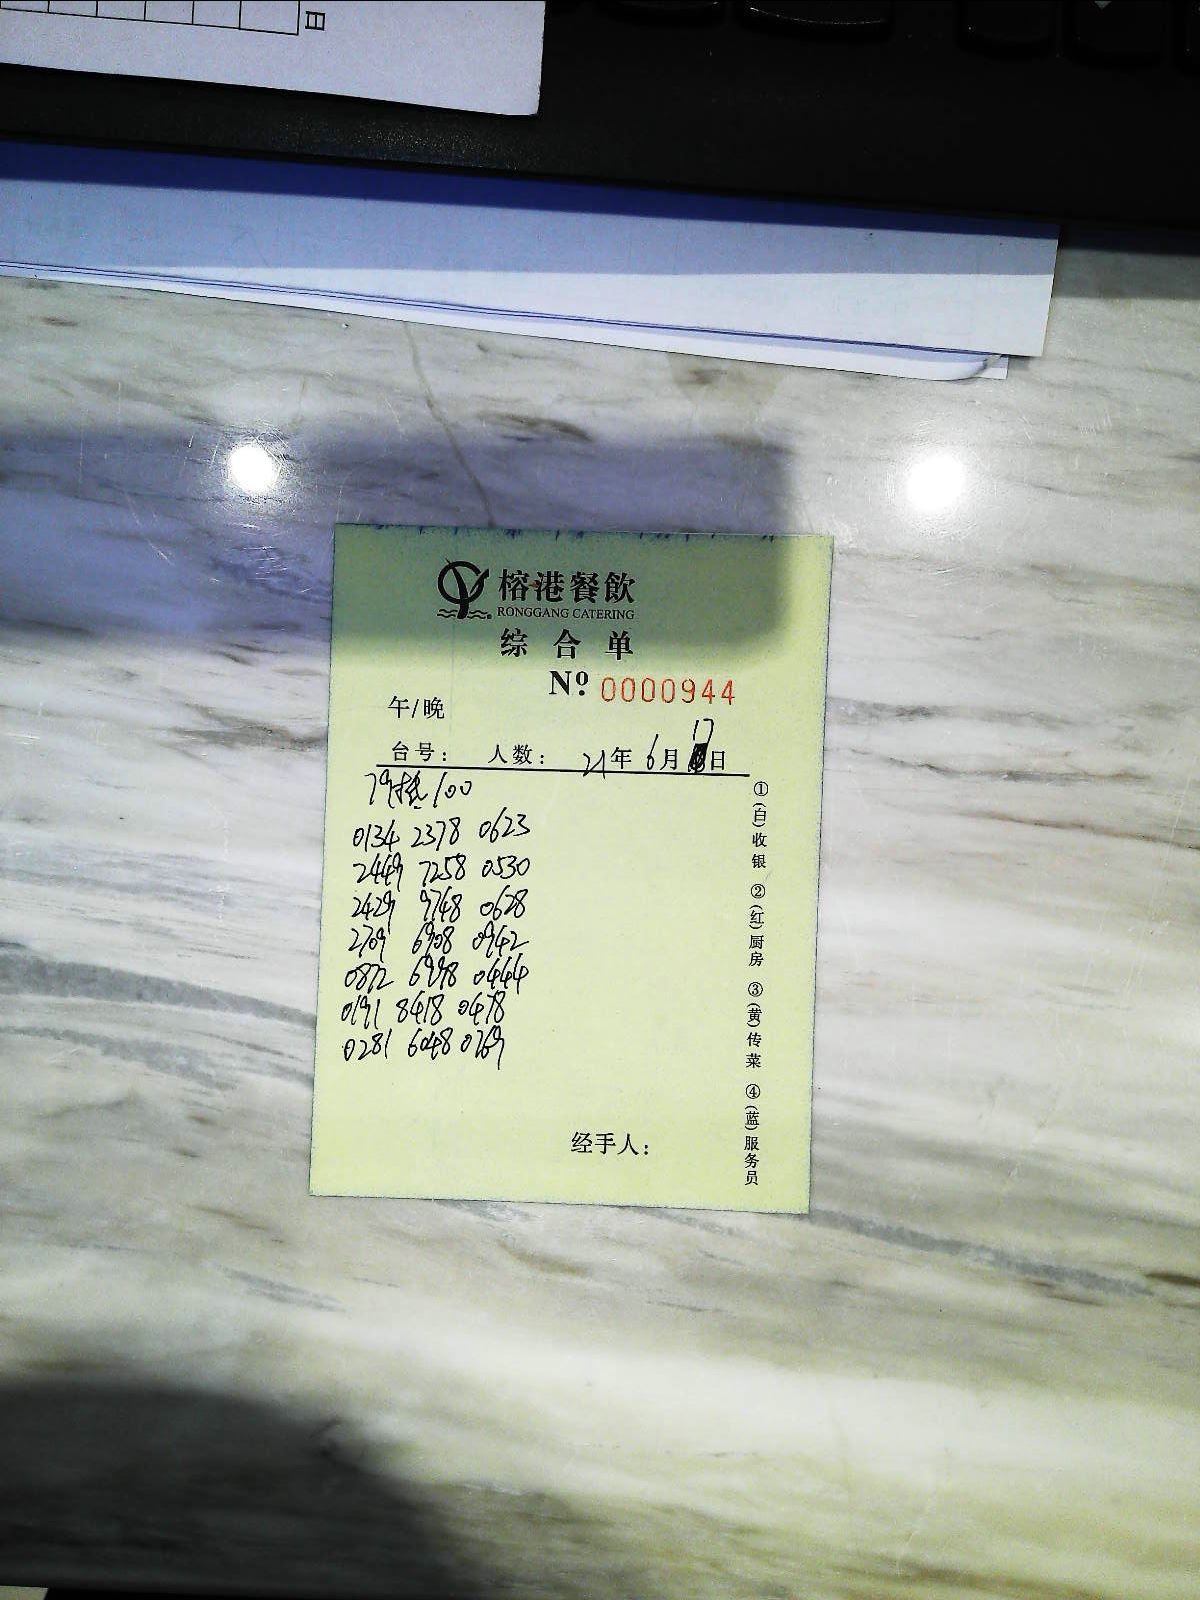 日
榕港餐飲
RONGGANG CATERING
综合单
Nº 0000944
午/晚
台号: 人数: 21年 6月 17日
79 100
0134 2378 0623
2449 7258 0530
2429 9748 0628
2709 6908 0942
0872 6998 0444
0191 8418 0478
0281 6048 0769
经手人:
①(白)收银 ②(红)厨房 ③(黄)传菜 ④(蓝)服务员